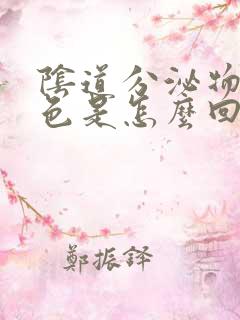 陰道分泌物
色是怎麼回
鄭振鐸